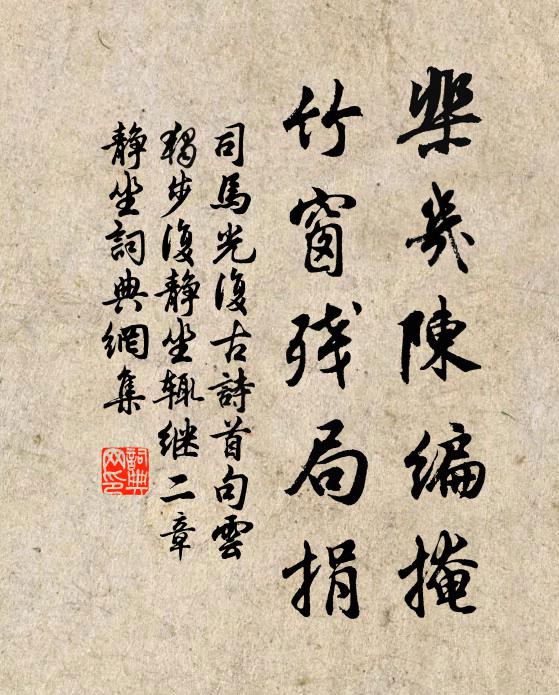 棐几陳編掩
竹窗残局捐
司馬光復古詩首句雲
獨步復静坐辄继二章
静坐詞典網集
詞典网印